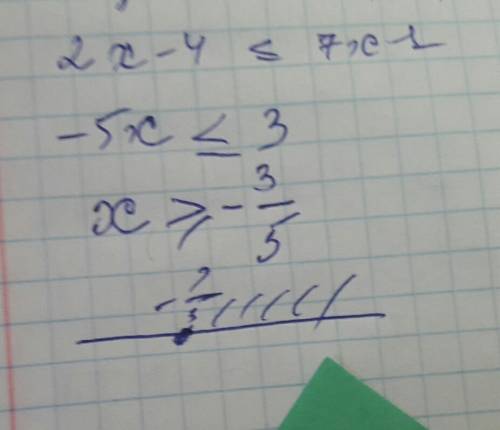 2x-4 ≤ 7x-1
-5x ≤ 3
x ≥ -3/5